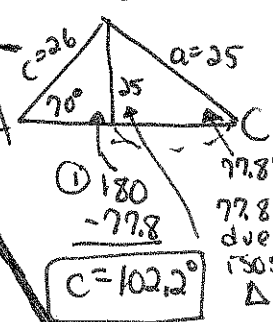 c=26
a=25
70°
25
A
C
① 180
-77.8
C=102.2°
77.8°
77.8
due
isos
Δ